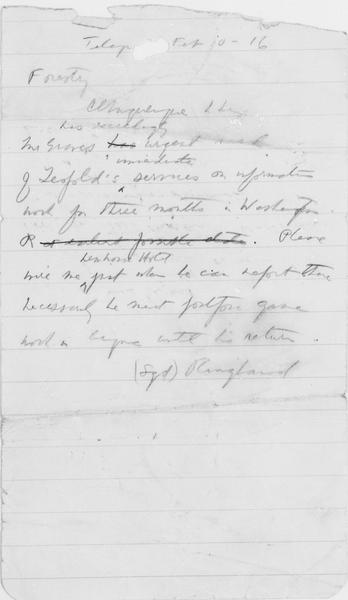 Feb 10 - 16
Forestry
Albuquerque N Mex
has exceedingly
Mr Graves has urgent need
immediate
of Leopold's services on information
work for three months in Washington.
R at earliest possible date. Please
Denham Hotel
wire me just when he can report there
necessarily he must postpone game
work in until his return.
(Sgd) Ringland